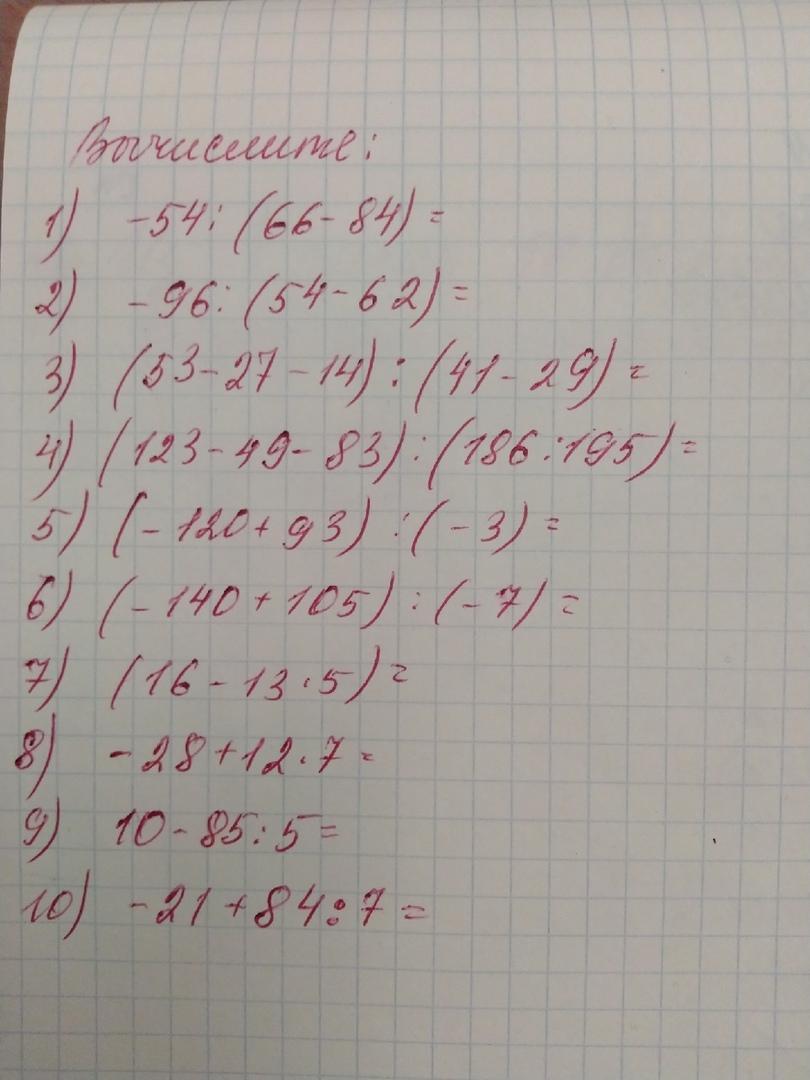 Вычислите:
1) -54:(66-84)=
2) -96:(54-62)=
3) (53-27-14):(41-29)=
4) (123-49-83):(186:195)=
5) (-120+93):(-3)=
6) (-140+105):(-7)=
7) (16-13·5)=
8) -28+12·7=
9) 10-85:5=
10) -21+84:7=